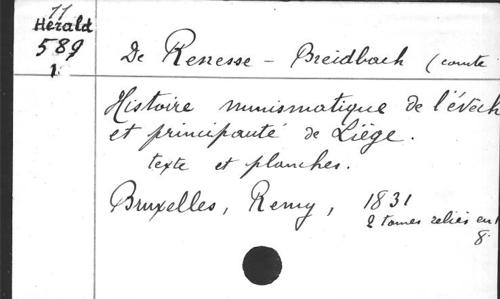 77
Herald
589
1
De Renesse - Breidbach (comte
Histoire numismatique de l'évêch
et principauté de Liège.
texte et planches.
Bruxelles, Remy, 1831
2 tomes reliés en 1
8°